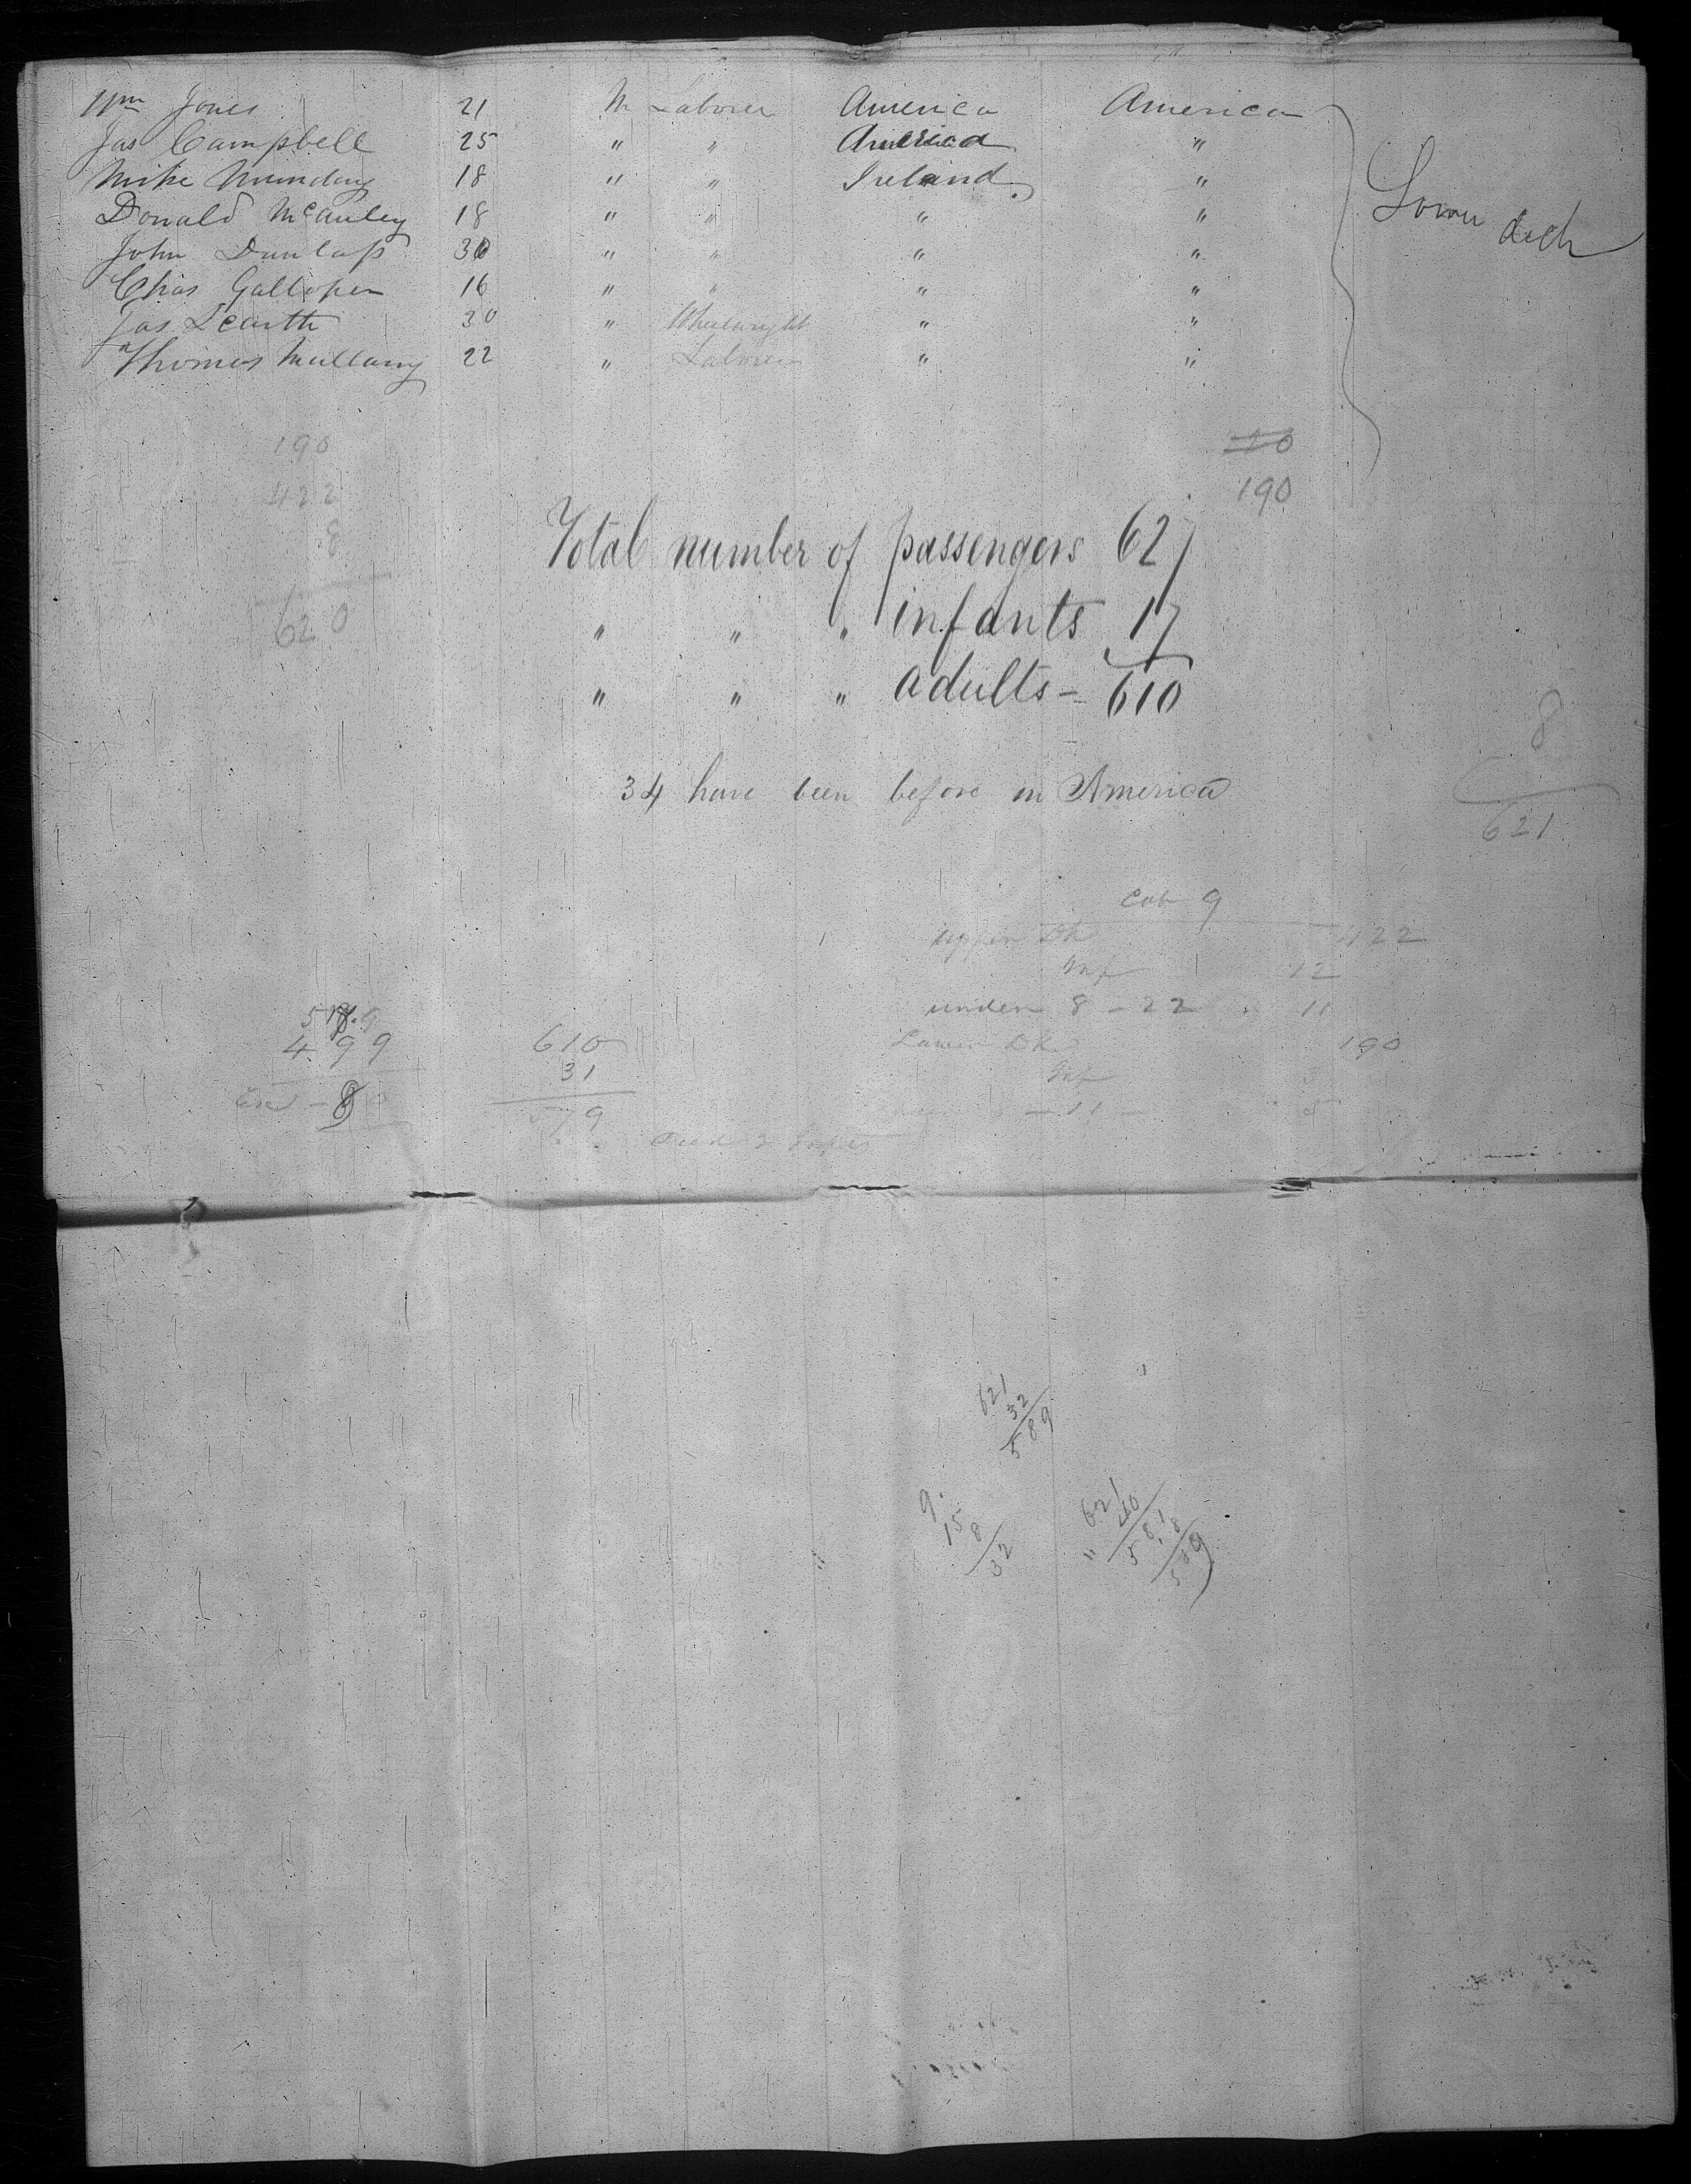 Wm Jones 21 M Laborer America America
Jas Campbell 25 " " America "
Mike Munday 18 " " Ireland "
Donald McAuley 18 " " " "
John Dunlap 30 " " " "
Chas Galloper 16 " " " "
Jas 30 " Wheelwright " "
Thomas Mullany 22 " Laborer " "
Lower deck
190
422
8
620
190
Total number of passengers 627
" " " infants 17
" " " adults - 610
34 have been before in America
8
621
Cab 9
upper Dk 422
Inf 12
under 8 - 22 11
Lower Dk 190
Inf
- 11 - 5
499
610
31
579
621
32
589
9
15
8
32
621
40
581
8
589